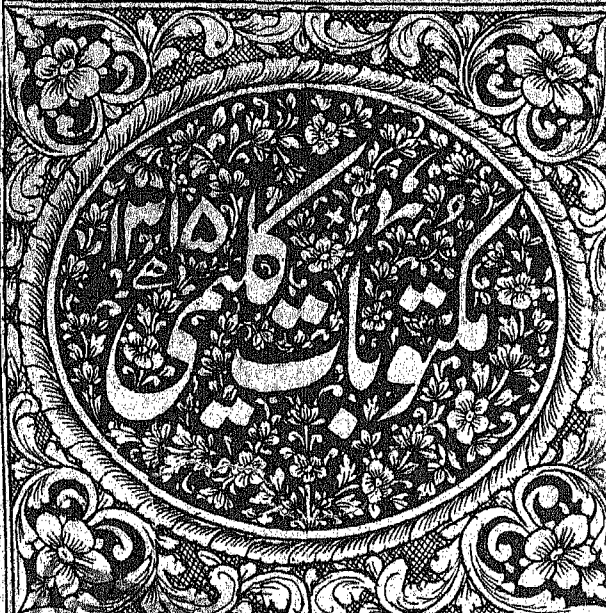 مکتوبات کلیمی
۱۳۱۵ھ